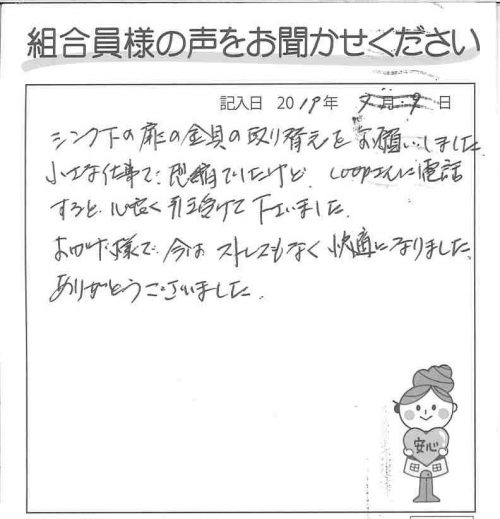 組合員様の声をお聞かせください
記入日 2019年 9月9日
シンク下の扉の金具の取り替えをお願いしました。
小さな仕事で恐縮でしたけど、LOOPさんに電話
すると、心良く引き受けて下さいました。
おかげ様で、今はストレスもなく快適になりました。
ありがとうございました。
安心